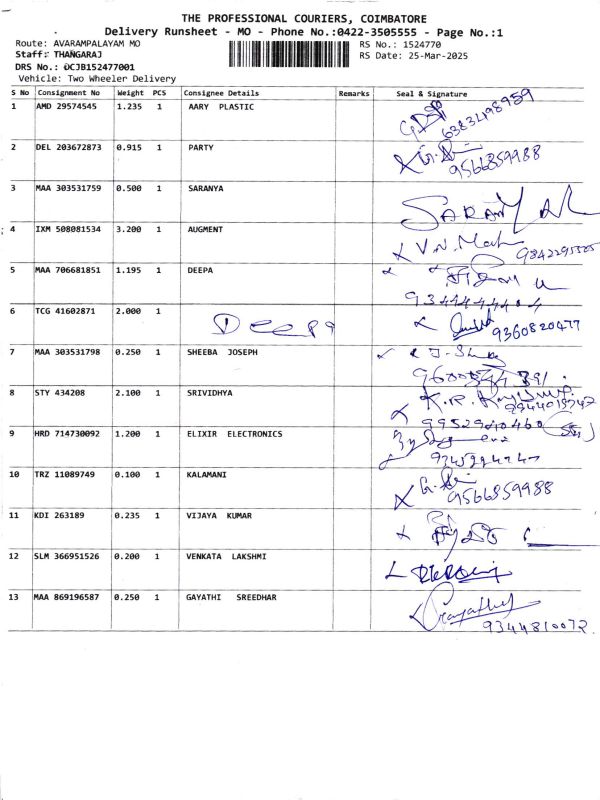 THE PROFESSIONAL COURIERS, COIMBATORE
Delivery Runsheet - MO - Phone No.:0422-3505555 - Page No.:1
Route: AVARAMPALAYAM MO RS No.: 1524770
Staff: THANGARAJ RS Date: 25-Mar-2025
DRS No.: DCJB152477001
Vehicle: Two Wheeler Delivery
S No Consignment No Weight PCS Consignee Details Remarks Seal & Signature
1 AMD 29574545 1.235 1 AARY PLASTIC
6383498959
2 DEL 203672873 0.915 1 PARTY
9566859988
3 MAA 303531759 0.500 1 SARANYA
4 IXM 508081534 3.200 1 AUGMENT
9842295585
5 MAA 706681851 1.195 1 DEEPA
6 TCG 41602871 2.000 1
Deepa 9360820477
7 MAA 303531798 0.250 1 SHEEBA JOSEPH
8 STY 434208 2.100 1 SRIVIDHYA
9952940460
9 HRD 714730092 1.200 1 ELIXIR ELECTRONICS
10 TRZ 11089749 0.100 1 KALAMANI
9566859988
11 KDI 263189 0.235 1 VIJAYA KUMAR
12 SLM 366951526 0.200 1 VENKATA LAKSHMI
13 MAA 869196587 0.250 1 GAYATHI SREEDHAR
9344810072